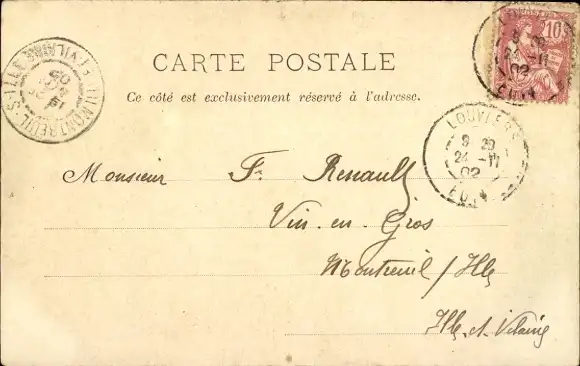 CARTE POSTALE
Ce côté est exclusivement réservé à l'adresse.
10
LOUVIERS
9 29
24 -11
02
EURE
Monsieur F. Renault
Vin en Gros
Montreuil / Ille
Ille-et-Vilaine
MONTREUIL-S-ILLE
ILLE-ET-VILAINE